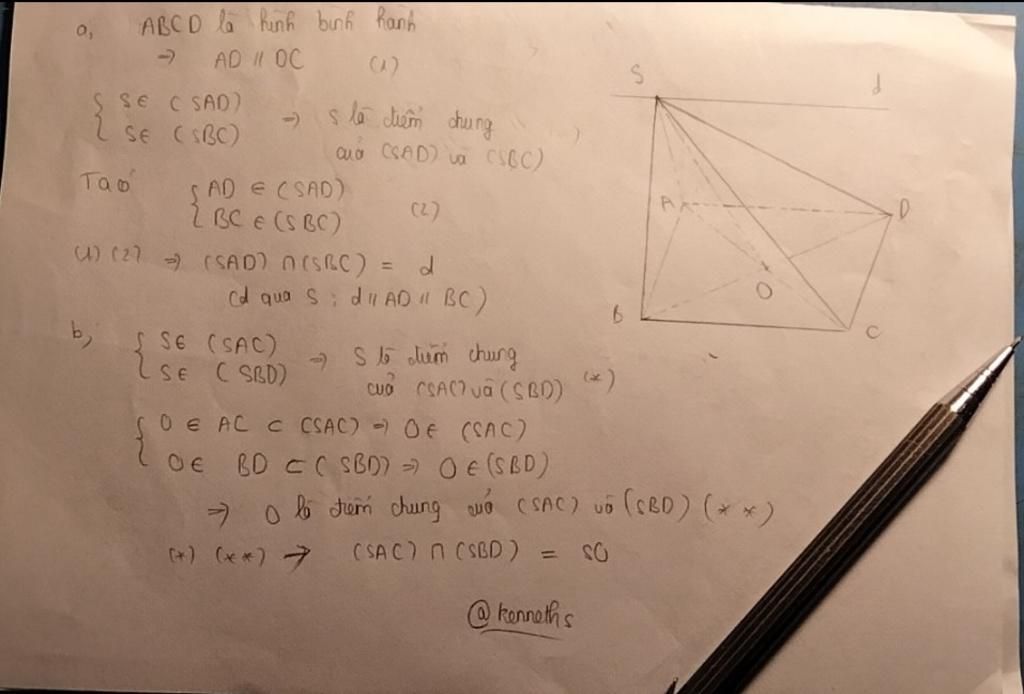 a, ABCD là hình bình hành
→ AD // DC (1)
{ S ∈ (SAD)
S ∈ (SBC) → S là điểm chung
của (SAD) và (SBC)
Ta có { AD ∈ (SAD)
BC ∈ (SBC) (2)
(1) (2) ⇒ (SAD) ∩ (SBC) = d
(d qua S ; d // AD // BC)
b, { S ∈ (SAC)
S ∈ (SBD) ⇒ S là điểm chung
của (SAC) và (SBD) (*)
{ O ∈ AC ⊂ (SAC) ⇒ O ∈ (SAC)
O ∈ BD ⊂ (SBD) ⇒ O ∈ (SBD)
⇒ O là điểm chung của (SAC) và (SBD) (**)
(*) (**) → (SAC) ∩ (SBD) = SO
@kenneths
S d
A D
O
B C